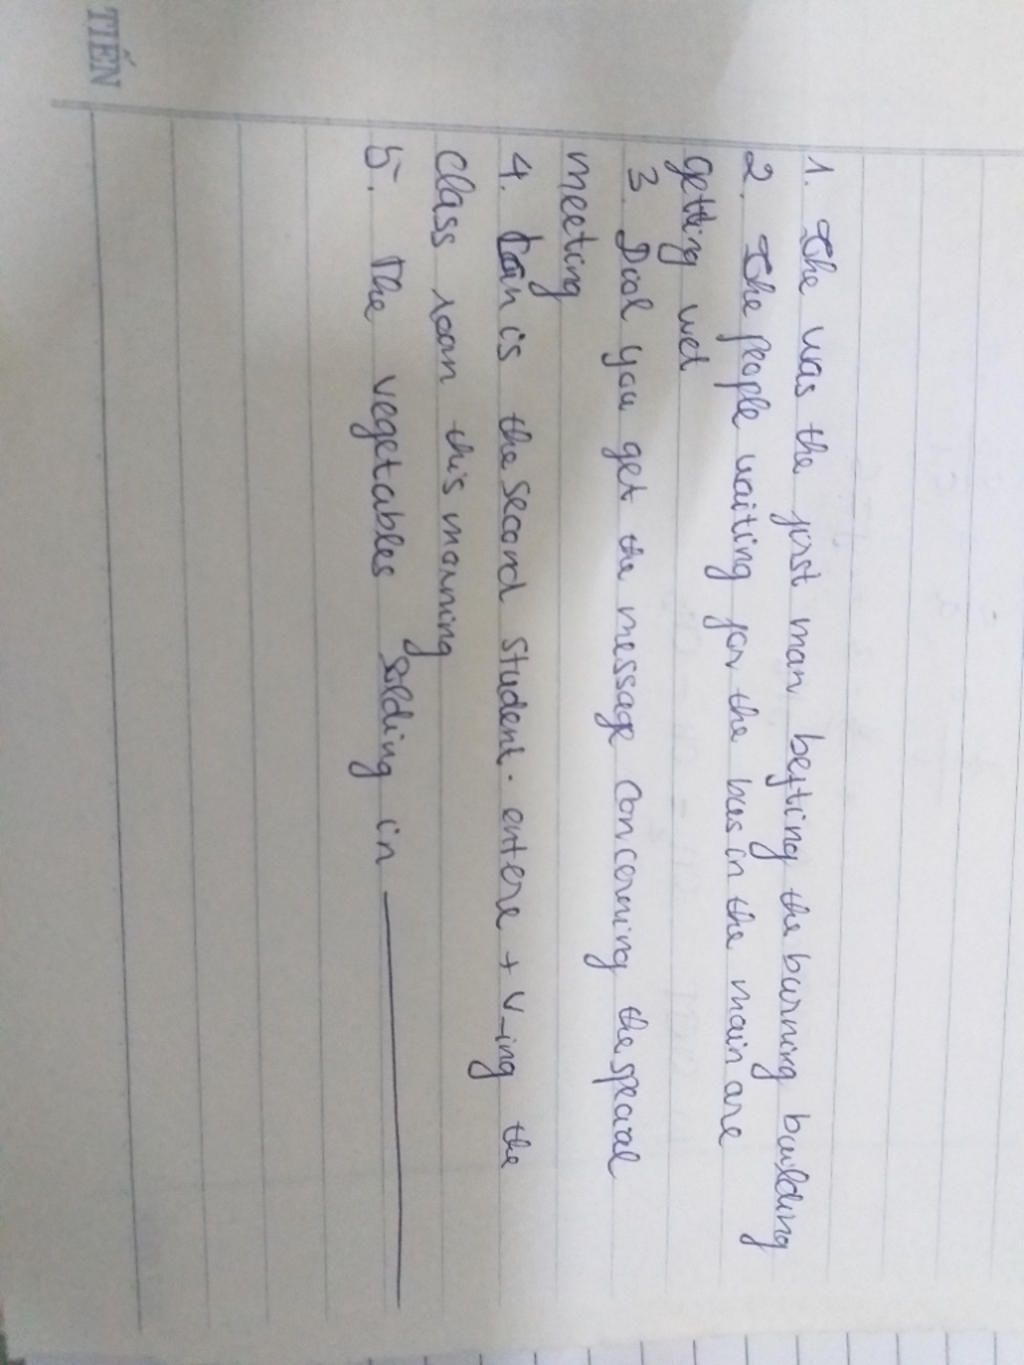 TIẾN
1. The was the first man befting the burning building
2. The people waiting for the bus in the main are
getting wet
3. Did you get the message concerning the special
meeting
4. Lan is the second student. entere + V-ing the
class roan this morning
5. The vegetables solding in